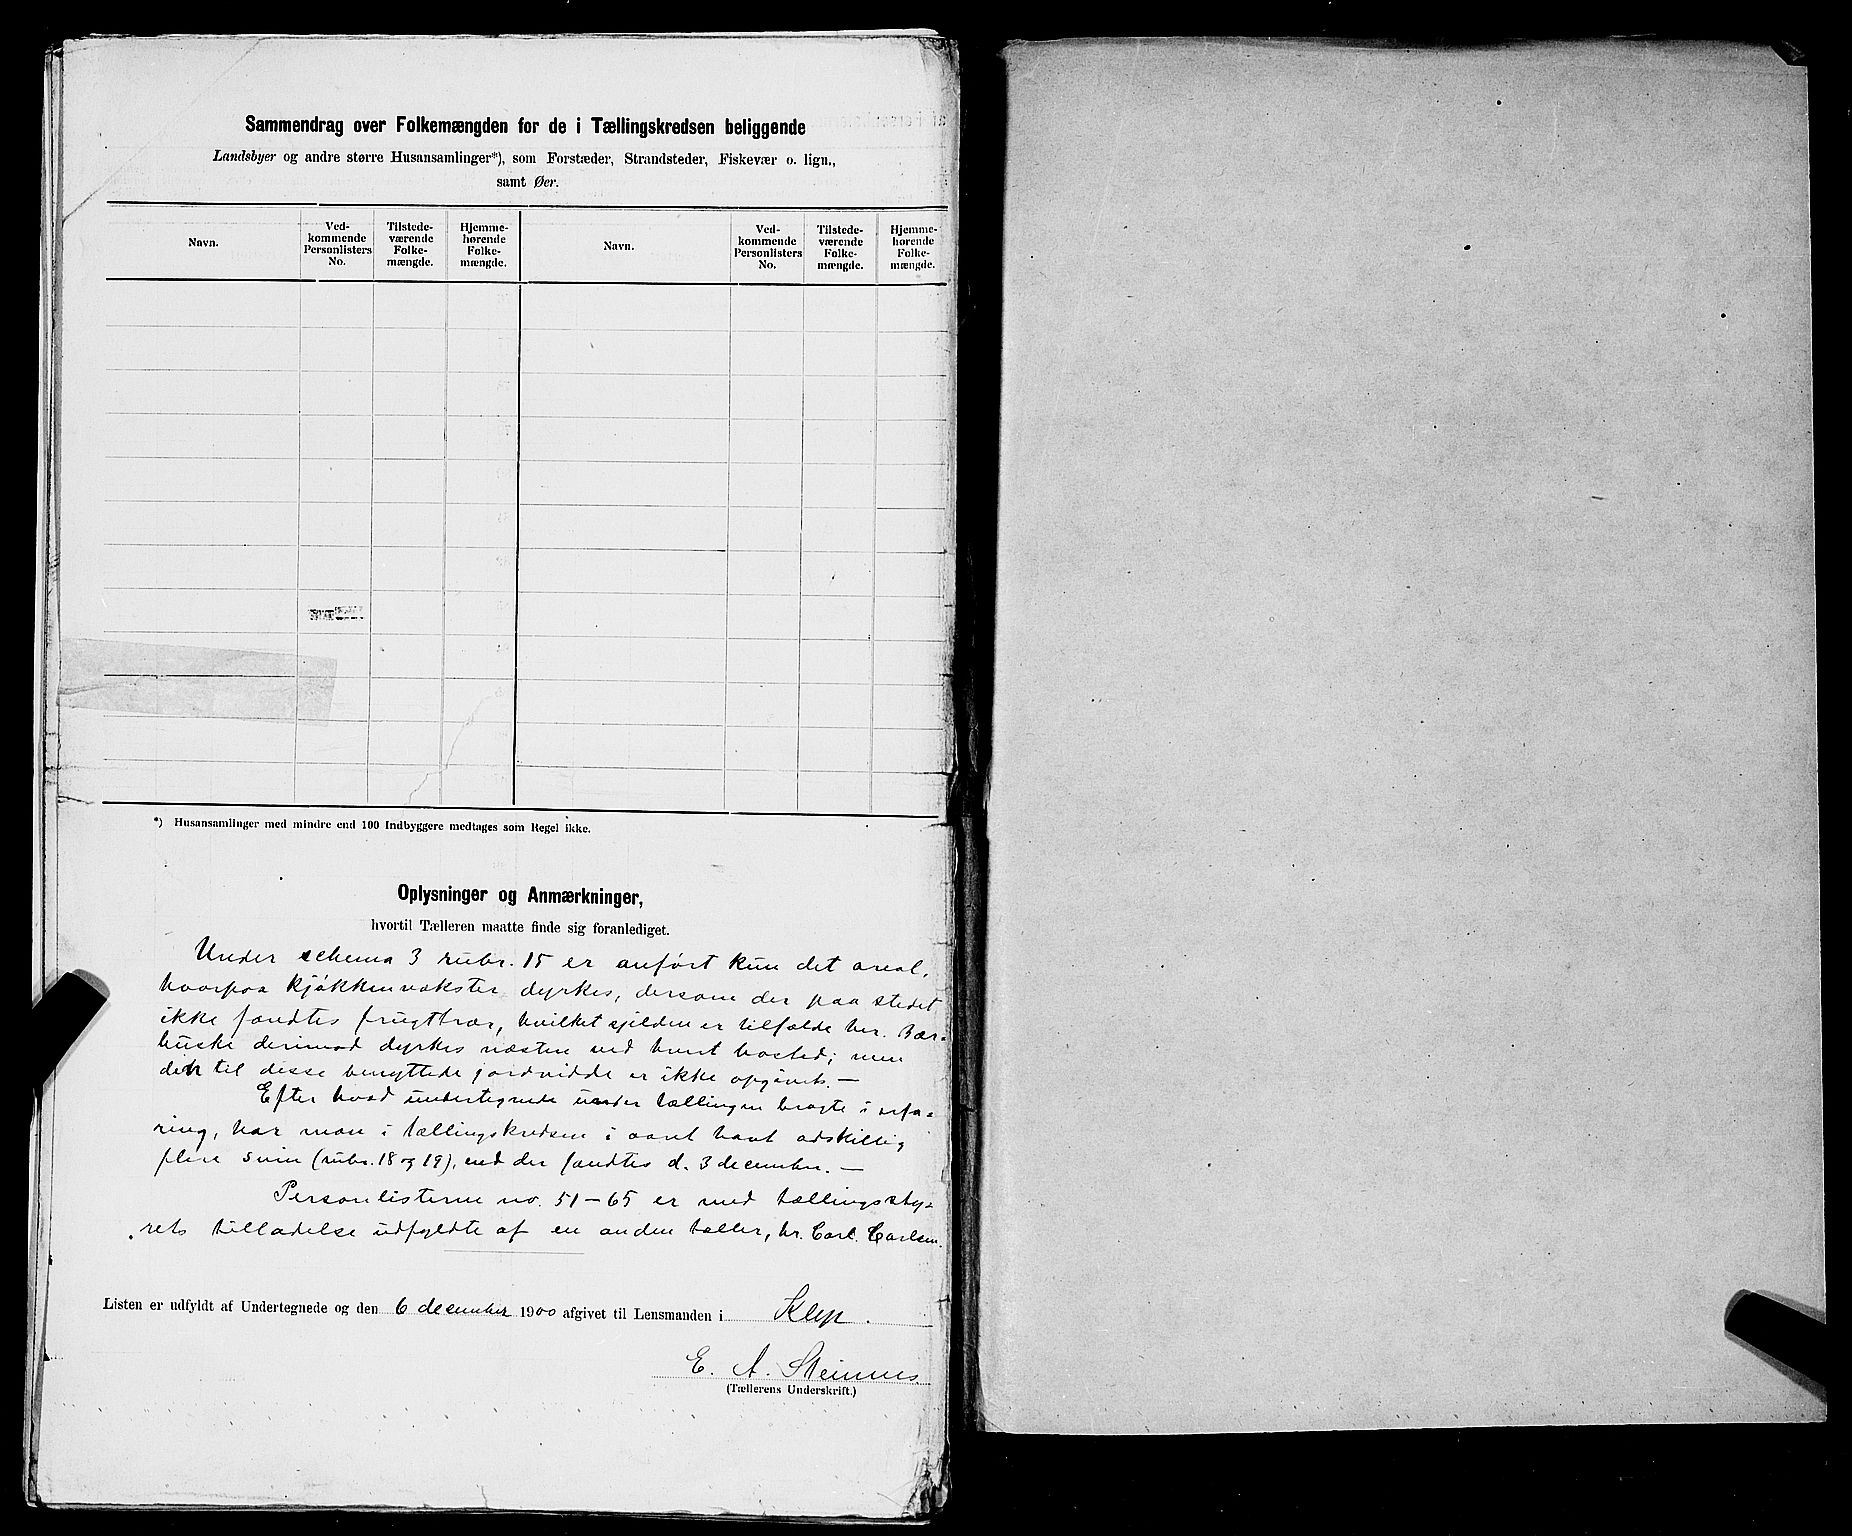 Sammendrag over Folkemængden for de i Tællingskredsen beliggende
Landsbyer og andre større Husansamlinger*), som Forstæder, Strandsteder, Fiskevær o. lign.,
samt Øer.
Navn.
Ved-
kommende
Personlisters
No.
Tilstede-
værende
Folke-
mængde.
Hjemme-
hørende
Folke-
mængde.
Navn.
Ved-
kommende
Personlisters
No.
Tilstede-
værende
Folke-
mængde.
Hjemme-
hørende
Folke-
mængde.
*) Husansamlinger med mindre end 100 Indbyggere medtages som Regel ikke.
Oplysninger og Anmærkninger,
hvortil Tælleren maatte finde sig foranlediget.
Under schema 3 rubr. 15 er anført kun det areal,
hvorpaa kjøkkenvækster dyrkes, dersom der paa stedet
ikke fandtes frugttrær, hvilket sjelden er tilfælde her. Bær-
buske derimod dyrkes næsten ved hvert bosted; men
den til disse benyttede jordvidde er ikke opgivet. —
Efter hvad undertegnede under tællingen bragte i erfa-
ring, har man i tællingskredsen i aaret havt adskillig
flere svin (rubr. 18 og 19), end der fandtes d. 3 december. —
Personlisterne no. 51-65 er med tællingssty-
rets tilladelse udfyldte af en anden tæller, hr. Carl Carlsen.
Listen er udfyldt af Undertegnede og den 6 december 1900 afgivet til Lensmanden i Klep.
E. A. Steinnes
(Tællerens Underskrift.)